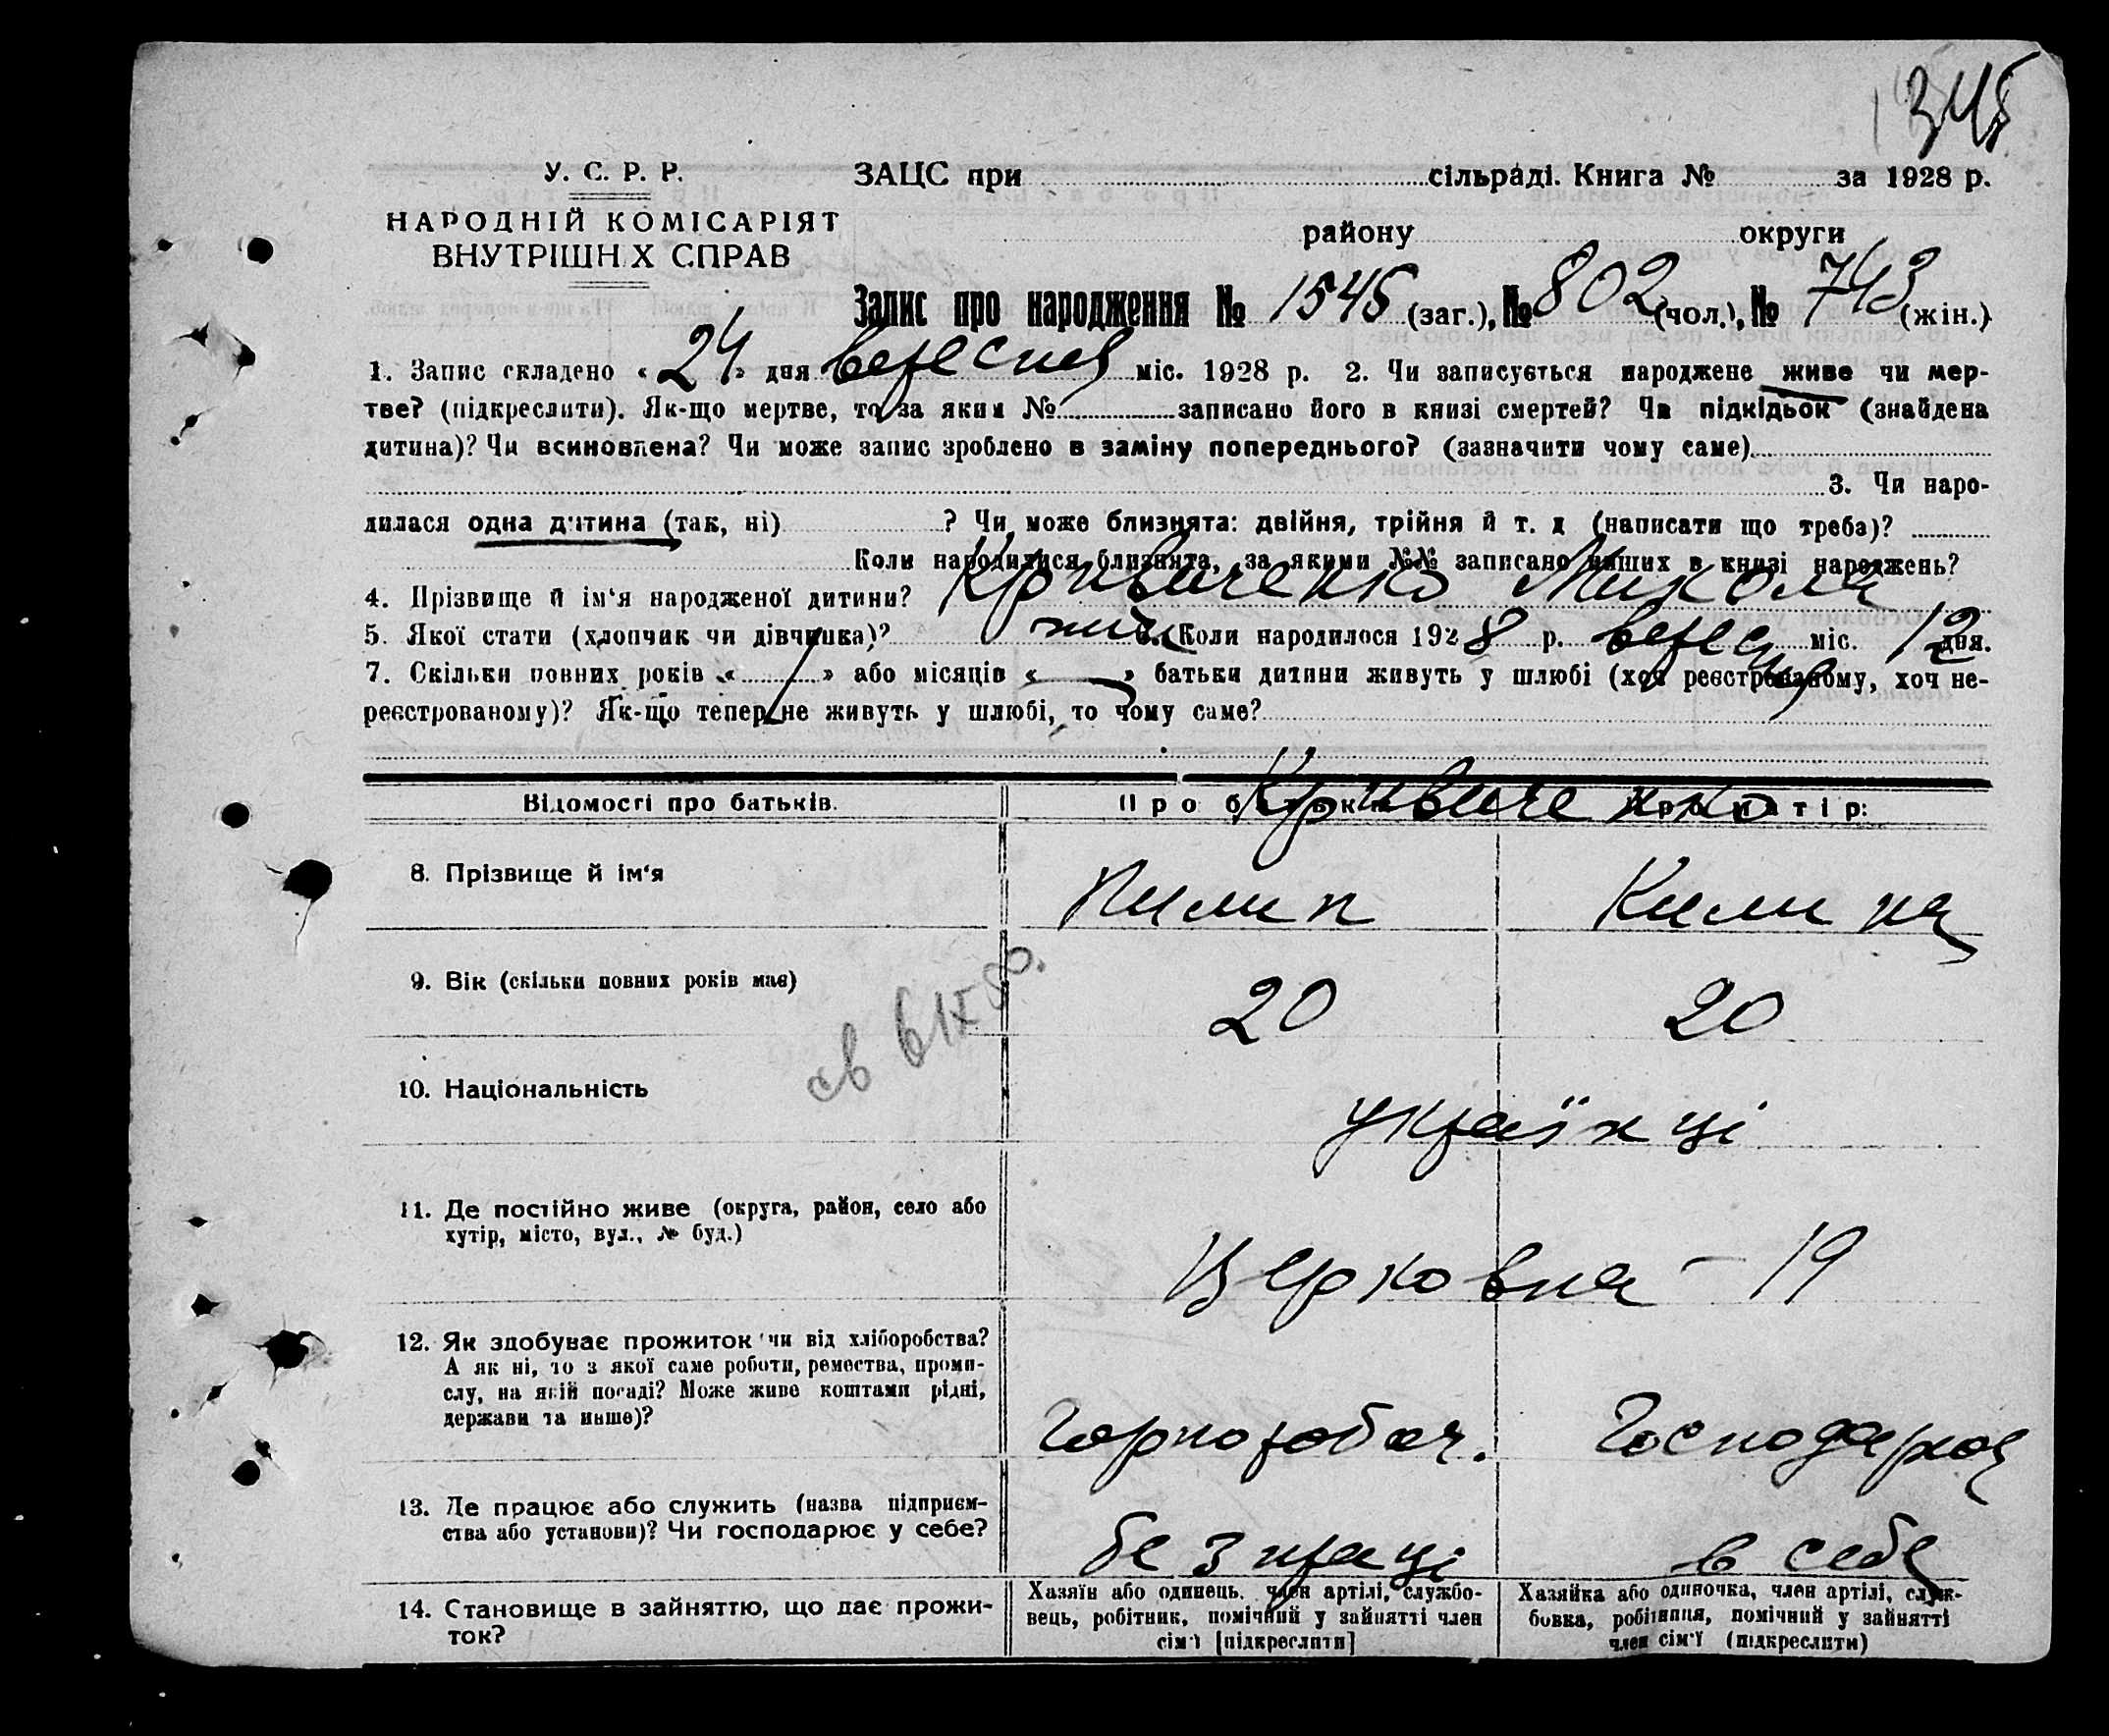 345
У. С. Р. Р. ЗАЦС при сільраді. Книга № за 1928 р.
НАРОДНІЙ КОМІСАРІЯТ
ВНУТРІШН Х СПРАВ
району округи
Запис про народження № 1545 (заг.), № 802 (чол.), № 743 (жін.)
1. Запис складено « 24 » дня вересня міс. 1928 р. 2. Чи записується народжене живе чи мер-
тве? (підкреслити). Як-що мертве, то за яким № записано його в книзі смертей? Чи підкідьок (знайдена
дитина)? Чи всиновлена? Чи може запис зроблено в заміну попереднього? (зазначити чому саме)
3. Чи наро-
дилася одна дитина (так, ні) ? Чи може близнята: двійня, трійня й т. д (написати що треба)?
Коли народилися близнята, за якими №№ записано инших в книзі народжень?
4. Прізвище й ім'я народженої дитини? Кривиченко Микола
5. Якої стати (хлопчик чи дівчинка)? 6. Коли народилося 1928 р. вересня міс. 12 дня.
7. Скільки повних років « » або місяців « — » батьки дитини живуть у шлюбі (хоч реєстрованому, хоч не-
реєстрованому)? Як-що тепер не живуть у шлюбі, то чому саме?
Відомості про батьків. Про батька Про матір:
Кривиченко
8. Прізвище й ім'я Пилип Килина
9. Вік (скільки повних років має) 20 20
10. Національність українці
11. Де постійно живе (округа, район, село або
хутір, місто, вул., № буд.) Церковна - 19
12. Як здобуває прожиток чи від хліборобства?
А як ні, то з якої саме роботи, ремества, проми-
слу, на якій посаді? Може живе коштами рідні,
держави та инше)? Чорнороboч. Господарка
13. Де працює або служить (назва підприєм-
ства або установи)? Чи господарює у себе? без праці в себе
14. Становище в зайняттю, що дає прожи-
ток?
Хазяїн або одинець, член артілі, службо-
вець, робітник, помічний у зайнятті член
сім'ї [підкреслити]
Хазяйка або одиночка, член артілі, служ-
бовка, робітниця, помічний у зайнятті
член сім'ї (підкреслити)